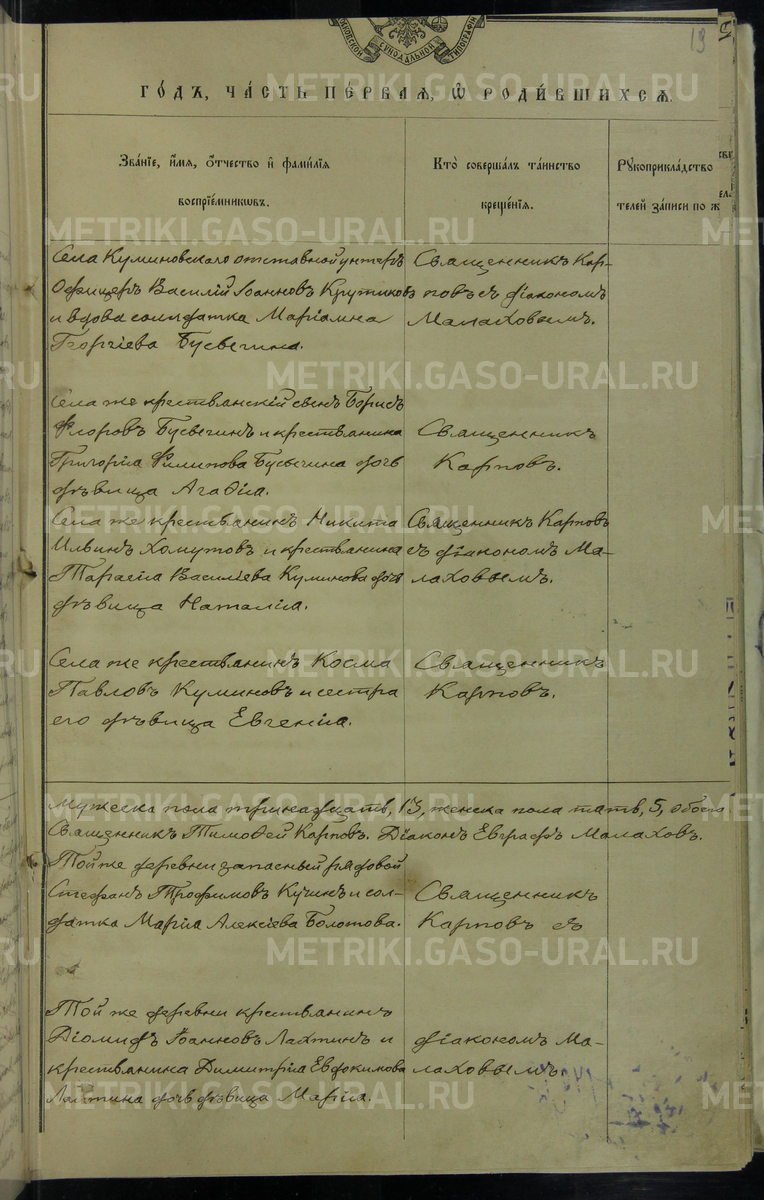 МОСКОВСКОЙ СѴНОДАЛЬНОЙ ТИПОГРАФІИ
19
ГО́ДЪ, ЧА́СТЬ ПЕ́РВАѦ, Ѡ҆ РОДИ́ВШИХСѦ.
Зва́нїе, и҆́мѧ, ѻ҆́тчество и҆ фами́лїѧ
воспрїе́мникѡвъ.
Кто̀ соверша́лъ та́инство
креще́нїѧ.
Рꙋкоприкла́дство
телей за́писи по ж
Села Куминовскаго отставной унтеръ
Офицеръ Василій Іоанновъ Крутиковъ
и вдова солдатка Маріамна
Георгіева Бусыгина.
Священникъ Кар-
повъ съ діакономъ
Малаховымъ.
Села же крестьянскій сынъ Борисъ
Флоровъ Бусыгинъ и крестьянина
Григорія Филипова Бусыгина дочь
дѣвица Агафія.
Священникъ
Карповъ.
Села же крестьянинъ Никита
Ильинъ Хомутовъ и крестьянина
Тарасія Василіева Куминова дочь
дѣвица Наталія.
Священникъ Карповъ
съ діакономъ Ма-
лаховымъ.
Села же крестьянинъ Косма
Павловъ Куминовъ и сестра
его дѣвица Евгенія.
Священникъ
Карповъ.
Мужеска пола тринадцать, 13, женска пола пять, 5, обоего
Священникъ Тимоѳей Карповъ. Діаконъ Евграфъ Малаховъ.
Той же деревни запасный рядовой
Стефанъ Трофимовъ Кучинъ и сол-
датка Марія Алексіева Болотова.
Священникъ
Карповъ съ
Той же деревни крестьянинъ
Діомидъ Іоанновъ Лахтинъ и
крестьянина Димитрія Евдокимова
Лахтина дочь дѣвица Марія.
діакономъ Ма-
лаховымъ.
METRIKI.GASO-URAL.RU